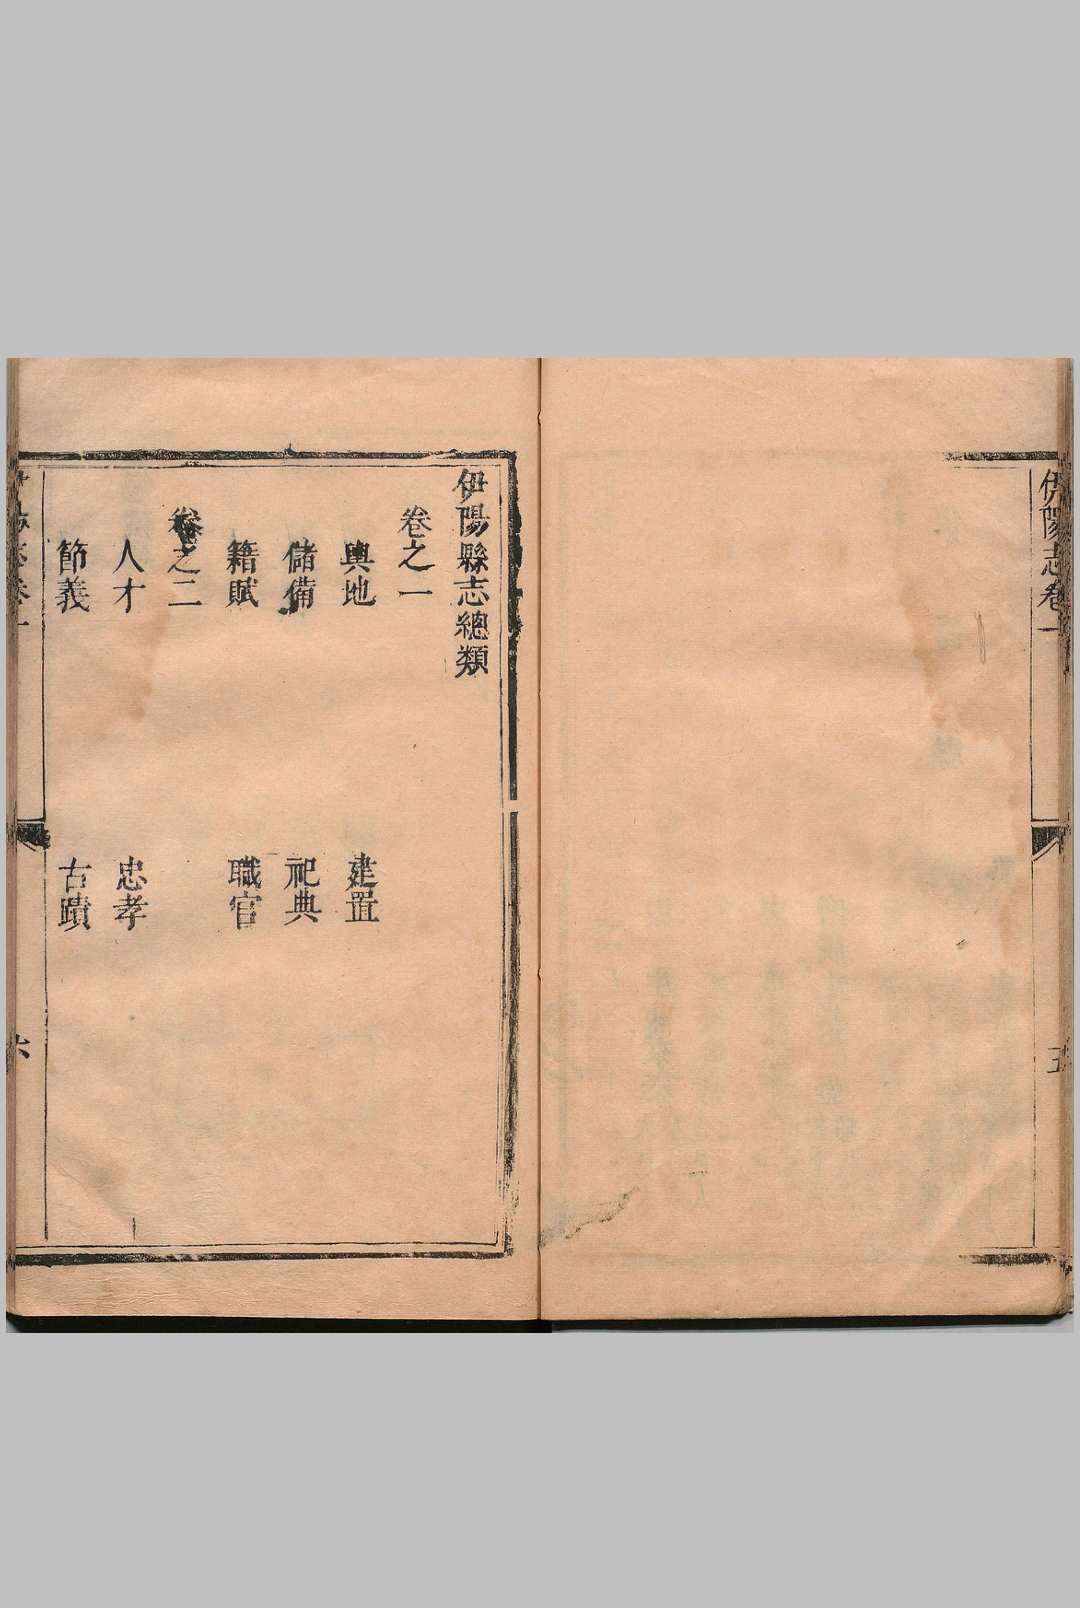 伊陽志卷一
五
伊陽縣志總類
卷之一
輿地 建置
儲備 祀典
籍賦 職官
卷之二
人才 忠孝
節義 古蹟
六